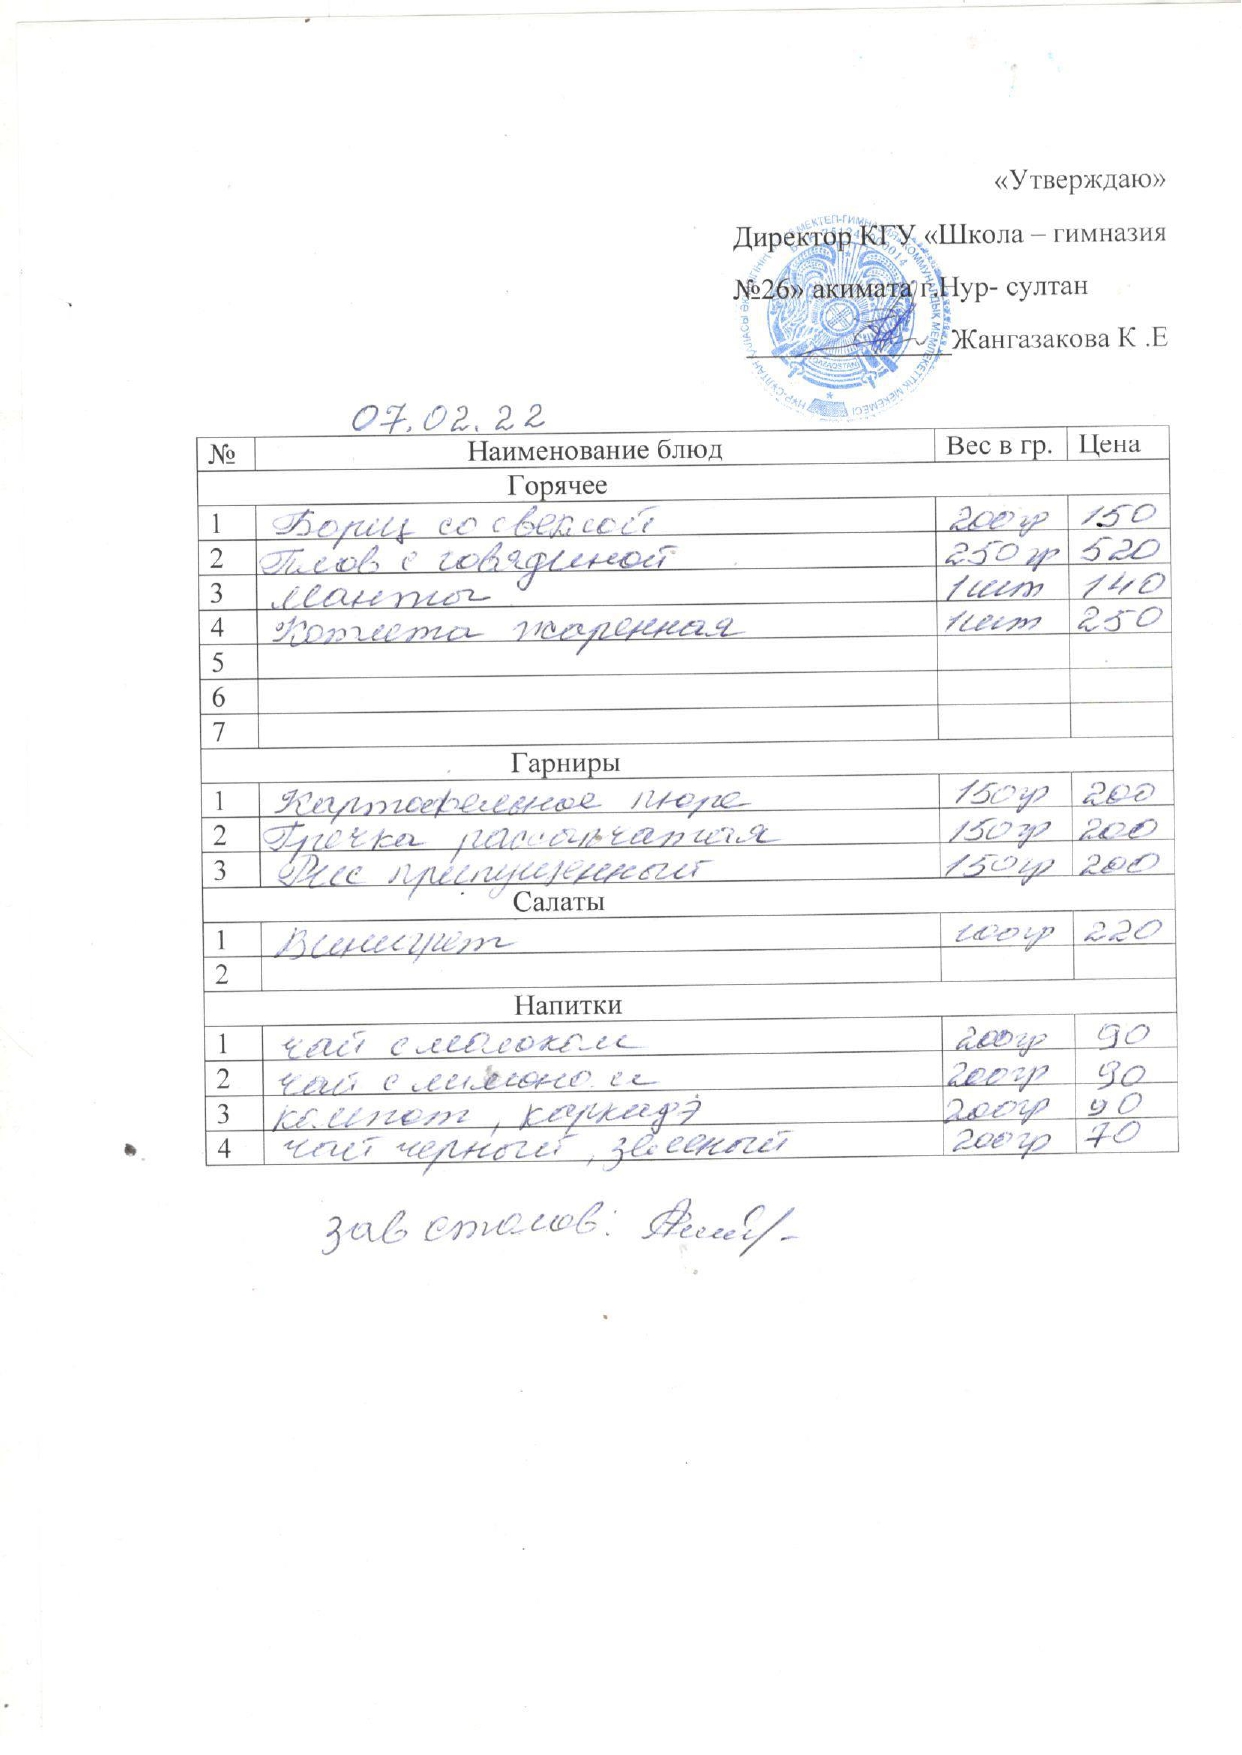 «Утверждаю»
Директор КГУ «Школа – гимназия
№26» акимата г.Нур- султан
Жангазакова К .Е
07.02.22
№ Наименование блюд Вес в гр. Цена
Горячее
1 Борщ со свеклой 200гр 150
2 Плов с говядиной 250 гр 520
3 Манты 1шт 140
4 Котлета жаренная 1шт 250
5
6
7
Гарниры
1 Картофельное пюре 150гр 200
2 Гречка рассыпчатая 150гр 200
3 Рис припущенный 150гр 200
Салаты
1 Винигрет 100гр 220
2
Напитки
1 чай с молоком 200гр 90
2 чай с лимоном 200гр 90
3 компот, каркадэ 200гр 90
4 чай черный, зеленый 200гр 70
зав столов: